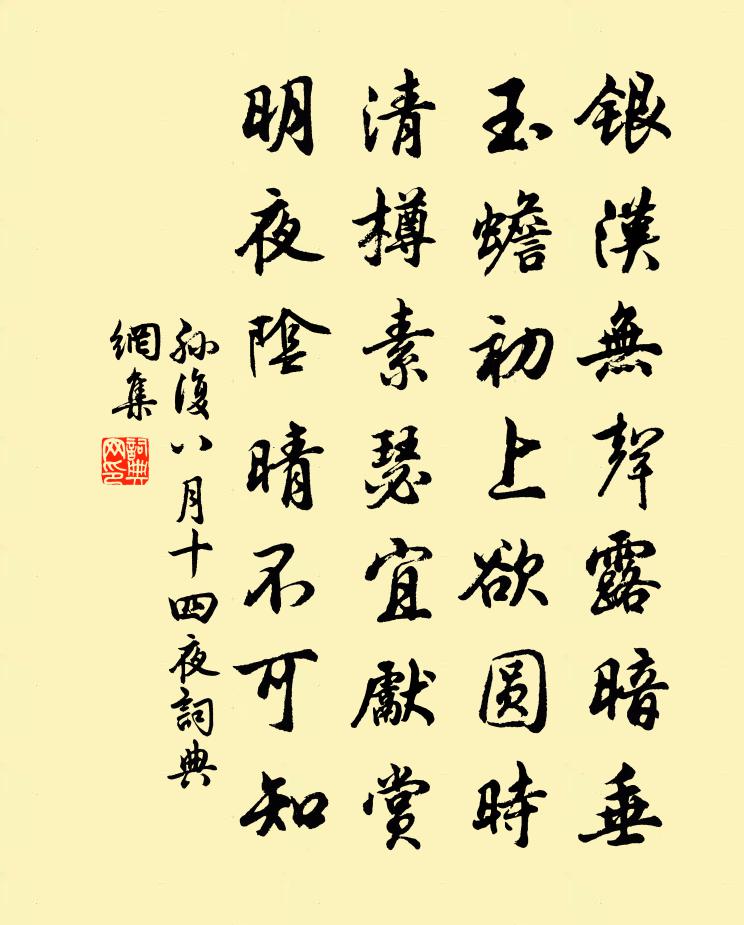 銀漢無聲露暗垂
玉蟾初上欲圓時
清樽素瑟宜獻賞
明夜陰晴不可知
孫復八月十四夜詞典
網集
詞典網印